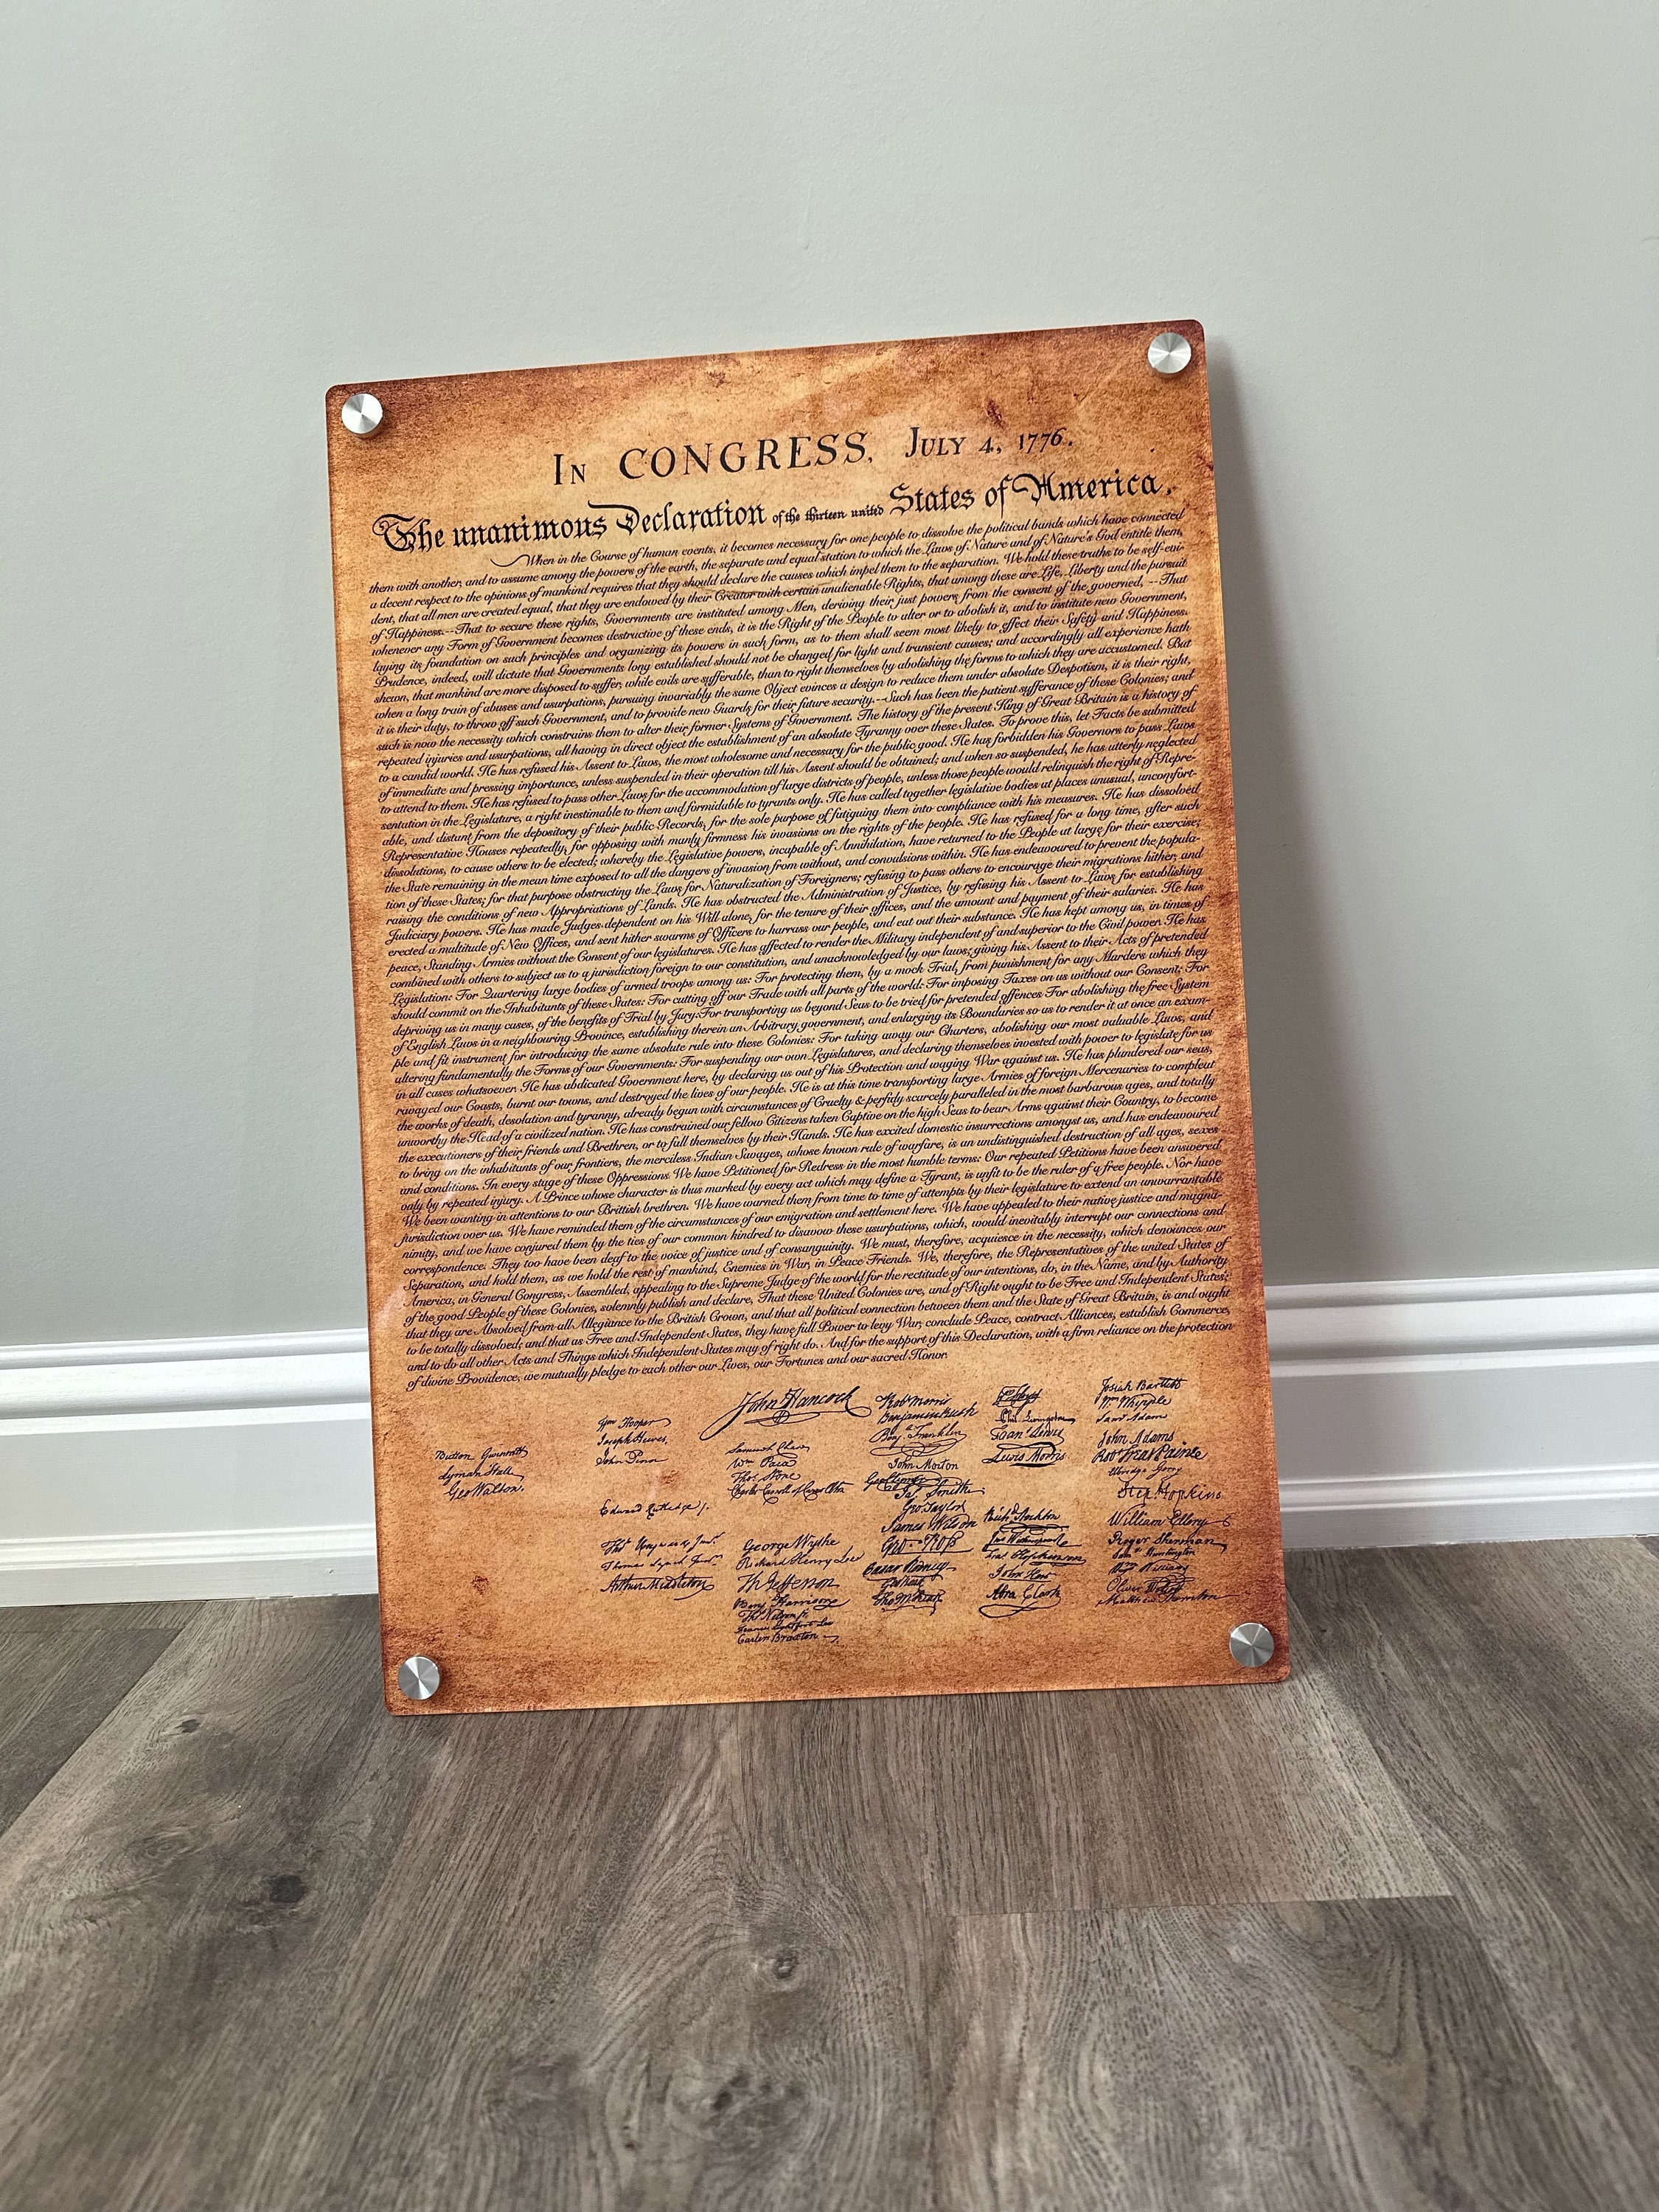 In CONGRESS, July 4, 1776.
The unanimous Declaration of the thirteen united States of America.
When in the Course of human events, it becomes necessary for one people to dissolve the political bands which have connected
them with another, and to assume among the powers of the earth, the separate and equal station to which the Laws of Nature and of Nature's God entitle them,
a decent respect to the opinions of mankind requires that they should declare the causes which impel them to the separation. We hold these truths to be self-evi-
dent, that all men are created equal, that they are endowed by their Creator with certain unalienable Rights, that among these are Life, Liberty and the pursuit
of Happiness.--That to secure these rights, Governments are instituted among Men, deriving their just powers from the consent of the governed, --That
whenever any Form of Government becomes destructive of these ends, it is the Right of the People to alter or to abolish it, and to institute new Government,
laying its foundation on such principles and organizing its powers in such form, as to them shall seem most likely to effect their Safety and Happiness.
Prudence, indeed, will dictate that Governments long established should not be changed for light and transient causes; and accordingly all experience hath
shewn, that mankind are more disposed to suffer, while evils are sufferable, than to right themselves by abolishing the forms to which they are accustomed. But
when a long train of abuses and usurpations, pursuing invariably the same Object evinces a design to reduce them under absolute Despotism, it is their right,
it is their duty, to throw off such Government, and to provide new Guards for their future security.--Such has been the patient sufferance of these Colonies; and
such is now the necessity which constrains them to alter their former Systems of Government. The history of the present King of Great Britain is a history of
repeated injuries and usurpations, all having in direct object the establishment of an absolute Tyranny over these States. To prove this, let Facts be submitted
to a candid world. He has refused his Assent to Laws, the most wholesome and necessary for the public good. He has forbidden his Governors to pass Laws
of immediate and pressing importance, unless suspended in their operation till his Assent should be obtained; and when so suspended, he has utterly neglected
to attend to them. He has refused to pass other Laws for the accommodation of large districts of people, unless those people would relinquish the right of Repre-
sentation in the Legislature, a right inestimable to them and formidable to tyrants only. He has called together legislative bodies at places unusual, uncomfort-
able, and distant from the depository of their public Records, for the sole purpose of fatiguing them into compliance with his measures. He has dissolved
Representative Houses repeatedly, for opposing with manly firmness his invasions on the rights of the people. He has refused for a long time, after such
dissolutions, to cause others to be elected; whereby the Legislative powers, incapable of Annihilation, have returned to the People at large for their exercise;
the State remaining in the mean time exposed to all the dangers of invasion from without, and convulsions within. He has endeavoured to prevent the popula-
tion of these States; for that purpose obstructing the Laws for Naturalization of Foreigners; refusing to pass others to encourage their migrations hither, and
raising the conditions of new Appropriations of Lands. He has obstructed the Administration of Justice, by refusing his Assent to Laws for establishing
Judiciary powers. He has made Judges dependent on his Will alone, for the tenure of their offices, and the amount and payment of their salaries. He has
erected a multitude of New Offices, and sent hither swarms of Officers to harrass our people, and eat out their substance. He has kept among us, in times of
peace, Standing Armies without the Consent of our legislatures. He has affected to render the Military independent of and superior to the Civil power. He has
combined with others to subject us to a jurisdiction foreign to our constitution, and unacknowledged by our laws; giving his Assent to their Acts of pretended
Legislation: For Quartering large bodies of armed troops among us: For protecting them, by a mock Trial, from punishment for any Murders which they
should commit on the Inhabitants of these States: For cutting off our Trade with all parts of the world: For imposing Taxes on us without our Consent: For
depriving us in many cases, of the benefits of Trial by Jury: For transporting us beyond Seas to be tried for pretended offences For abolishing the free System
of English Laws in a neighbouring Province, establishing therein an Arbitrary government, and enlarging its Boundaries so as to render it at once an exam-
ple and fit instrument for introducing the same absolute rule into these Colonies: For taking away our Charters, abolishing our most valuable Laws, and
altering fundamentally the Forms of our Governments: For suspending our own Legislatures, and declaring themselves invested with power to legislate for us
in all cases whatsoever. He has abdicated Government here, by declaring us out of his Protection and waging War against us. He has plundered our seas,
ravaged our Coasts, burnt our towns, and destroyed the lives of our people. He is at this time transporting large Armies of foreign Mercenaries to compleat
the works of death, desolation and tyranny, already begun with circumstances of Cruelty & perfidy scarcely paralleled in the most barbarous ages, and totally
unworthy the Head of a civilized nation. He has constrained our fellow Citizens taken Captive on the high Seas to bear Arms against their Country, to become
the executioners of their friends and Brethren, or to fall themselves by their Hands. He has excited domestic insurrections amongst us, and has endeavoured
to bring on the inhabitants of our frontiers, the merciless Indian Savages, whose known rule of warfare, is an undistinguished destruction of all ages, sexes
and conditions. In every stage of these Oppressions We have Petitioned for Redress in the most humble terms: Our repeated Petitions have been answered
only by repeated injury. A Prince whose character is thus marked by every act which may define a Tyrant, is unfit to be the ruler of a free people. Nor have
We been wanting in attentions to our Brittish brethren. We have warned them from time to time of attempts by their legislature to extend an unwarrantable
jurisdiction over us. We have reminded them of the circumstances of our emigration and settlement here. We have appealed to their native justice and magna-
nimity, and we have conjured them by the ties of our common kindred to disavow these usurpations, which, would inevitably interrupt our connections and
correspondence. They too have been deaf to the voice of justice and of consanguinity. We must, therefore, acquiesce in the necessity, which denounces our
Separation, and hold them, as we hold the rest of mankind, Enemies in War, in Peace Friends. We, therefore, the Representatives of the united States of
America, in General Congress, Assembled, appealing to the Supreme Judge of the world for the rectitude of our intentions, do, in the Name, and by Authority
of the good People of these Colonies, solemnly publish and declare, That these United Colonies are, and of Right ought to be Free and Independent States;
that they are Absolved from all Allegiance to the British Crown, and that all political connection between them and the State of Great Britain, is and ought
to be totally dissolved; and that as Free and Independent States, they have full Power to levy War, conclude Peace, contract Alliances, establish Commerce,
and to do all other Acts and Things which Independent States may of right do. And for the support of this Declaration, with a firm reliance on the protection
of divine Providence, we mutually pledge to each other our Lives, our Fortunes and our sacred Honor.
Button Gwinnett
Lyman Hall
Geo Walton.
Wm Hooper
Joseph Hewes,
John Penn
Edward Rutledge
Arthur Middleton
John Hancock
Samuel Chase
Wm Paca
Thos Stone
Charles Carroll of Carrollton
George Wythe
Richard Henry Lee
Th Jefferson
Benj Harrison
Thos Nelson jr.
Francis Lightfoot Lee
Carter Braxton
Robt Morris
Benjamin Rush
Benj. Franklin
John Morton
Geo Clymer
Jas. Smith
Geo. Taylor
James Wilson
Geo. Ross
Caesar Rodney
Geo Read
Tho M:Kean
Phil. Livingston
Frans. Lewis
Lewis Morris
Richd. Stockton
Jno Witherspoon
Fras. Hopkinson
John Hart
Abra Clark
Josiah Bartlett
Wm Whipple
Saml Adams
John Adams
Robt Treat Paine
Elbridge Gerry
Step. Hopkins
William Ellery
Roger Sherman
Saml Huntington
Wm Williams
Oliver Wolcott
Matthew Thornton